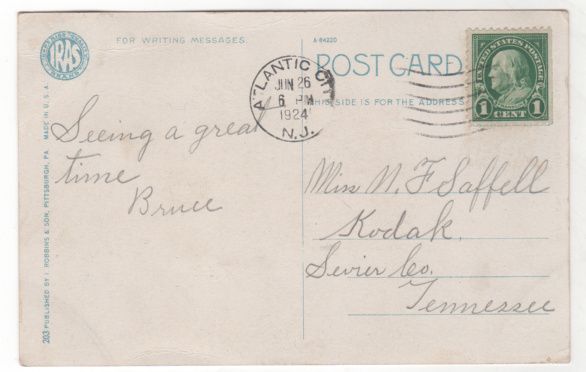 FOR WRITING MESSAGES.
A-84220
POST CARD
THIS SIDE IS FOR THE ADDRESS
IRAS
ATLANTIC CITY
JUN 26
6 PM
1924
N.J.
UNITED STATES POSTAGE
FRANKLIN
1 CENT 1
Seeing a great
time
Bruce
Miss N. F Saffell
Kodak.
Sevier Co.
Tennessee
203 PUBLISHED BY I. ROBBINS & SON, PITTSBURGH, PA. MADE IN U.S.A.